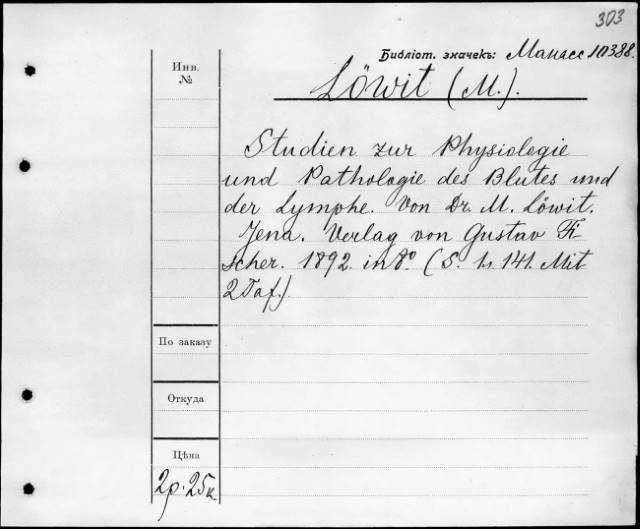 303
Библіот. значекъ: Манасс 10388.
Инв.
№
Löwit (M.).
Studien zur Physiologie
und Pathologie des Blutes und
der Lymphe. Von Dr. M. Löwit.
Jena. Verlag von Gustav Fi-
scher. 1892. in 8º. (S. 1.141. Mit
2 Taf.)
По заказу
Откуда
Цѣна
2 р. 25 к.